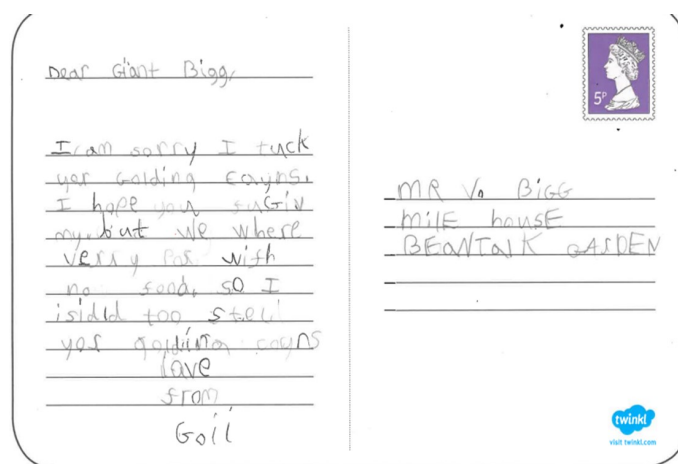 Dear Giant Bigg,
I am sorry I tuck
yer Golding cayns.
I hope you fuGiv
my. but we where
verry Por with
no food, so I
isidid too steil
yor golding coyns
lave
from
Goil
5P
MR V. BIGG
mile house
BEANTalK GARDEN
twinkl
visit twinkl.com